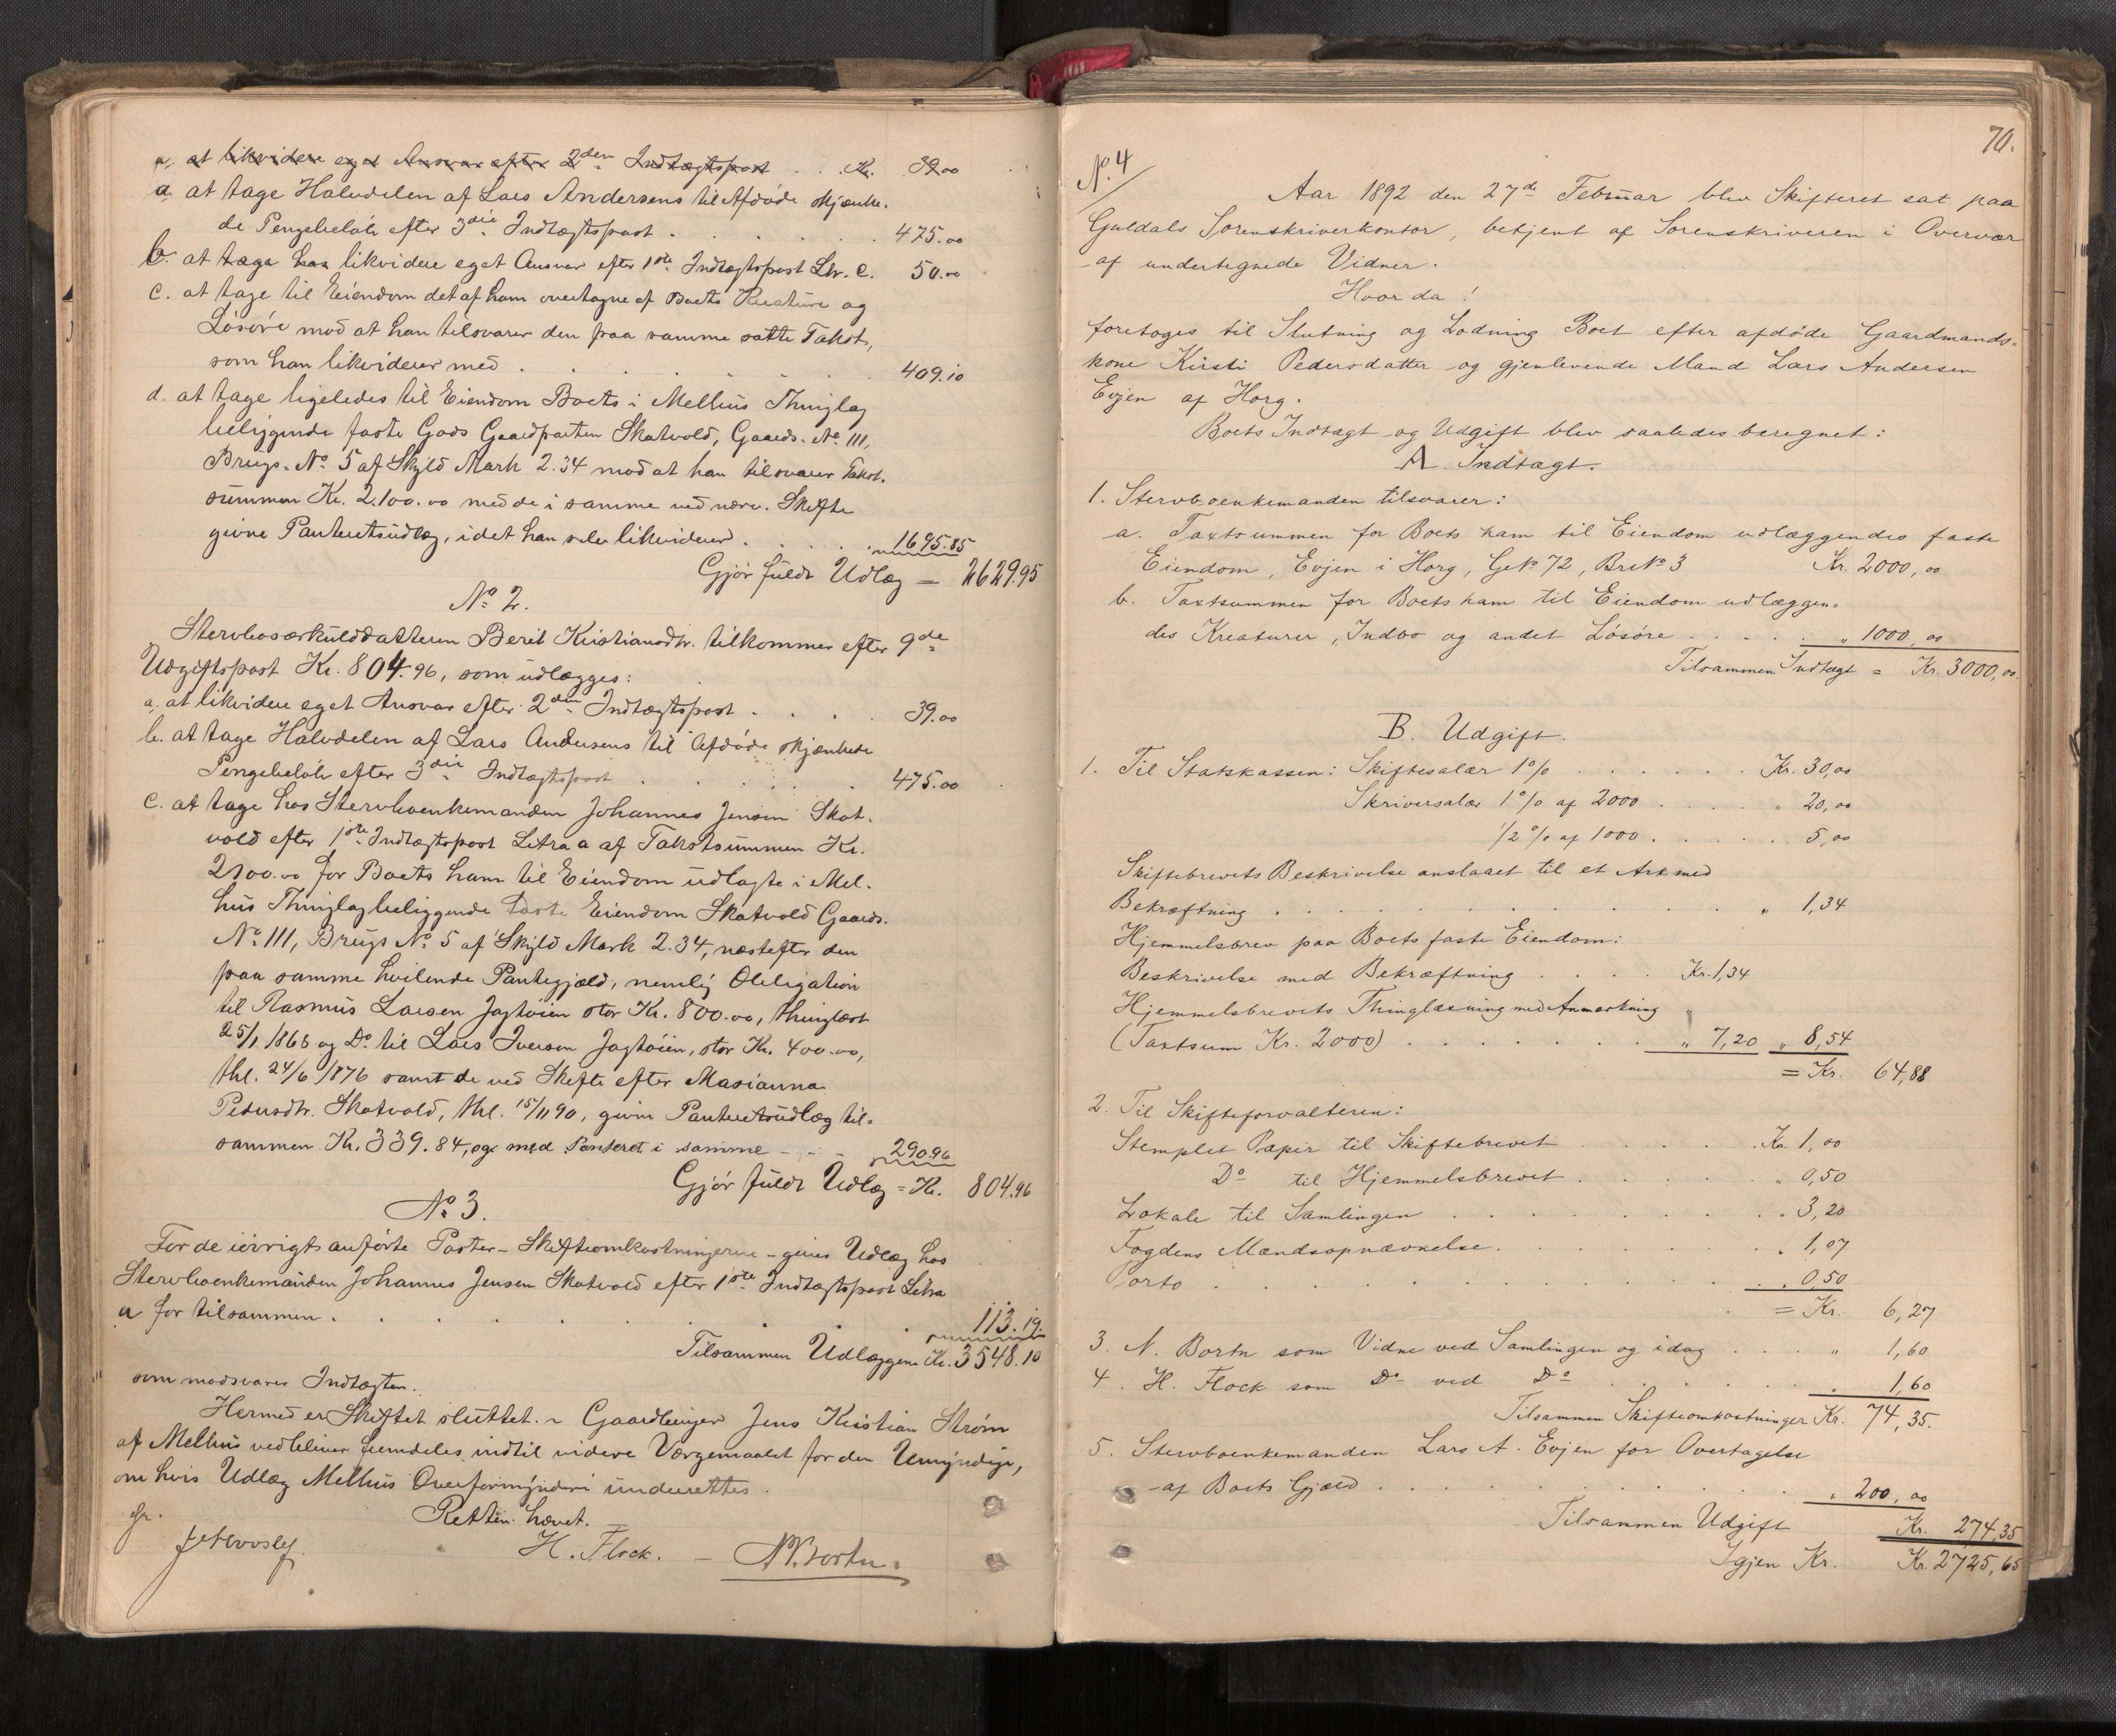 a. at likvidere eget Ansvar efter 2den Indtægtspost . . . Kr. 39.00
a. at tage Halvdelen af Lars Andersens til Afdøde skjænke-
de Pengebeløb efter 3die Indtægtspost . . . . . . 475.00
b. at tage hos likvidere eget Ansvar efter 1ste Indtægtspost Ltr. c. 50.00
c. at tage til Eiendom det af ham overtagne af Boets Kreature og
Løsøre mod at han tilsvarer den paa samme satte Takst,
som han likviderer med . . . . . . . 409.10
d. at tage ligeledes til Eiendom Boets i Melhus Thinglag
beliggende faste Gods Gaardparten Skatvold, Gaards-No 111,
Brugs-No 5 af Skyld Mark 2.34 mod at han tilsvarer Takst-
summen Kr. 2.100.00 med de i samme ved nærv. Skifte
givne Panteretsudlæg, idet han selv likviderer . . . . . 1695.85
Gjør fuldt Udlæg — 2629.95
No 2.
Stervbosærkulddatteren Berit Kristiansdtr. tilkommer efter 9de
Udgiftspost Kr. 804.96, som udlægges:
a. at likvidere eget Ansvar efter 2den Indtægtspost . . . . 39.00
b. at tage Halvdelen af Lars Andersens til Afdøde skjænkede
Pengebeløb efter 3die Indtægtspost . . . . . 475.00
c. at tage hos Stervboenkemanden Johannes Jensen Skat-
vold efter 1ste Indtægtspost Litra a af Takstsummen Kr.
2100.00 for Boets ham til Eiendom udlagte i Mel-
hus Thinglag beliggende faste Eiendom Skatvold Gaards-
No 111, Brugs No 5 af Skyld Mark 2.34, næstefter den
paa samme hvilende Pantegjæld, nemlig Obligation
til Rasmus Larsen Jagtøien stor Kr. 800.00, thinglæst
25/1 1866 og Do til Lars Iversen Jagtøien, stor Kr. 400.00,
thl. 24/6 1876 samt de ved Skifte efter Marianna
Pedersdtr. Skatvold, thl. 15/11 90, givne Panteretsudlæg til-
sammen Kr. 339.84, og med Panteret i samme - - - 290.96
Gjør fuldt Udlæg = Kr. 804.96
No 3.
For de iøvrigt anførte Poster - Skifteomkostningerne - gives Udlæg hos
Stervboenkemanden Johannes Jensen Skatvold efter 1ste Indtægtspost Litra
a for tilsammen . . . . . . . . 113.19.
Tilsammen Udlæggene Kr. 3548.10
som modsvarer Indtægten.
Hermed er Skiftet sluttet. - Gaardbruger Jens Kristian Strøm
af Melhus vedbliver fremdeles indtil videre Værgemaalet for den Umyndige,
om hvis Udlæg Melhus Overformynderi underrettes.
Retten hævet.
H. Flock. — N. Bortn.
70.
No. 4
Aar 1892 den 27de Februar blev Skifteret sat paa
Guldals Sorenskriverkontor, betjent af Sorenskriveren i Overvær
af undertegnede Vidner.
Hvor da!
foretoges til Slutning og Lodning Boet efter afdøde Gaardmands-
kone Kirsti Pedersdatter og gjenlevende Mand Lars Andersen
Evjen af Horg.
Boets Indtægt og Udgift blev saaledes beregnet:
A. Indtægt.
1. Stervboenkemanden tilsvarer:
a. Taxtsummen for Boets ham til Eiendom udlæggendes faste
Eiendom, Evjen i Horg, GNo 72, BrNo 3 Kr. 2000,00
b. Taxtsummen for Boets ham til Eiendom udlæggen-
des Kreaturer, Indbo og andet Løsøre . . . . . " 1000,00
Tilsammen Indtægt = Kr. 3000,00.
B. Udgift.
1. Til Statskassen: Skiftesalær 1% . . . . . . Kr. 30,00
Skriversalær 1% af 2000 . . . . . " 20,00
1/2 % af 1000 . . . . . . 5,00
Skiftebrevets Beskrivelse anslaaet til et Ark med
Bekræftning . . . . . . . . . " 1,34
Hjemmelsbrev paa Boets faste Eiendom:
Beskrivelse med Bekræftning . . . . Kr. 1,34
Hjemmelsbrevets Thinglæsning med Anmærkning
(Taxtsum Kr. 2000) . . . . . . . " 7,20 " 8,54
= Kr. 64,88
2. Til Skifteforvalteren:
Stemplet Papir til Skiftebrevet . . . . . Kr. 1,00
Do til Hjemmelsbrevet . . . . . . " 0,50
Lokale til Samlingen . . . . . . . . " 3,20
Fogdens Mandsopnævnelse . . . . . . . " 1,07
Porto . . . . . . . . . . . . " 0,50
= Kr. 6,27
3. N. Bortn som Vidne ved Samlingen og idag . . . . " 1,60
4. H. Flock som Do ved Do . . . . . . . 1,60
Tilsammen Skifteomkostninger Kr. 74,35.
5. Stervboenkemanden Lars A. Evjen for Overtagelse
af Boets Gjæld . . . . . . . . . " 200,00
Tilsammen Udgift Kr. 274,35
Igjen Kr. Kr. 2725,65